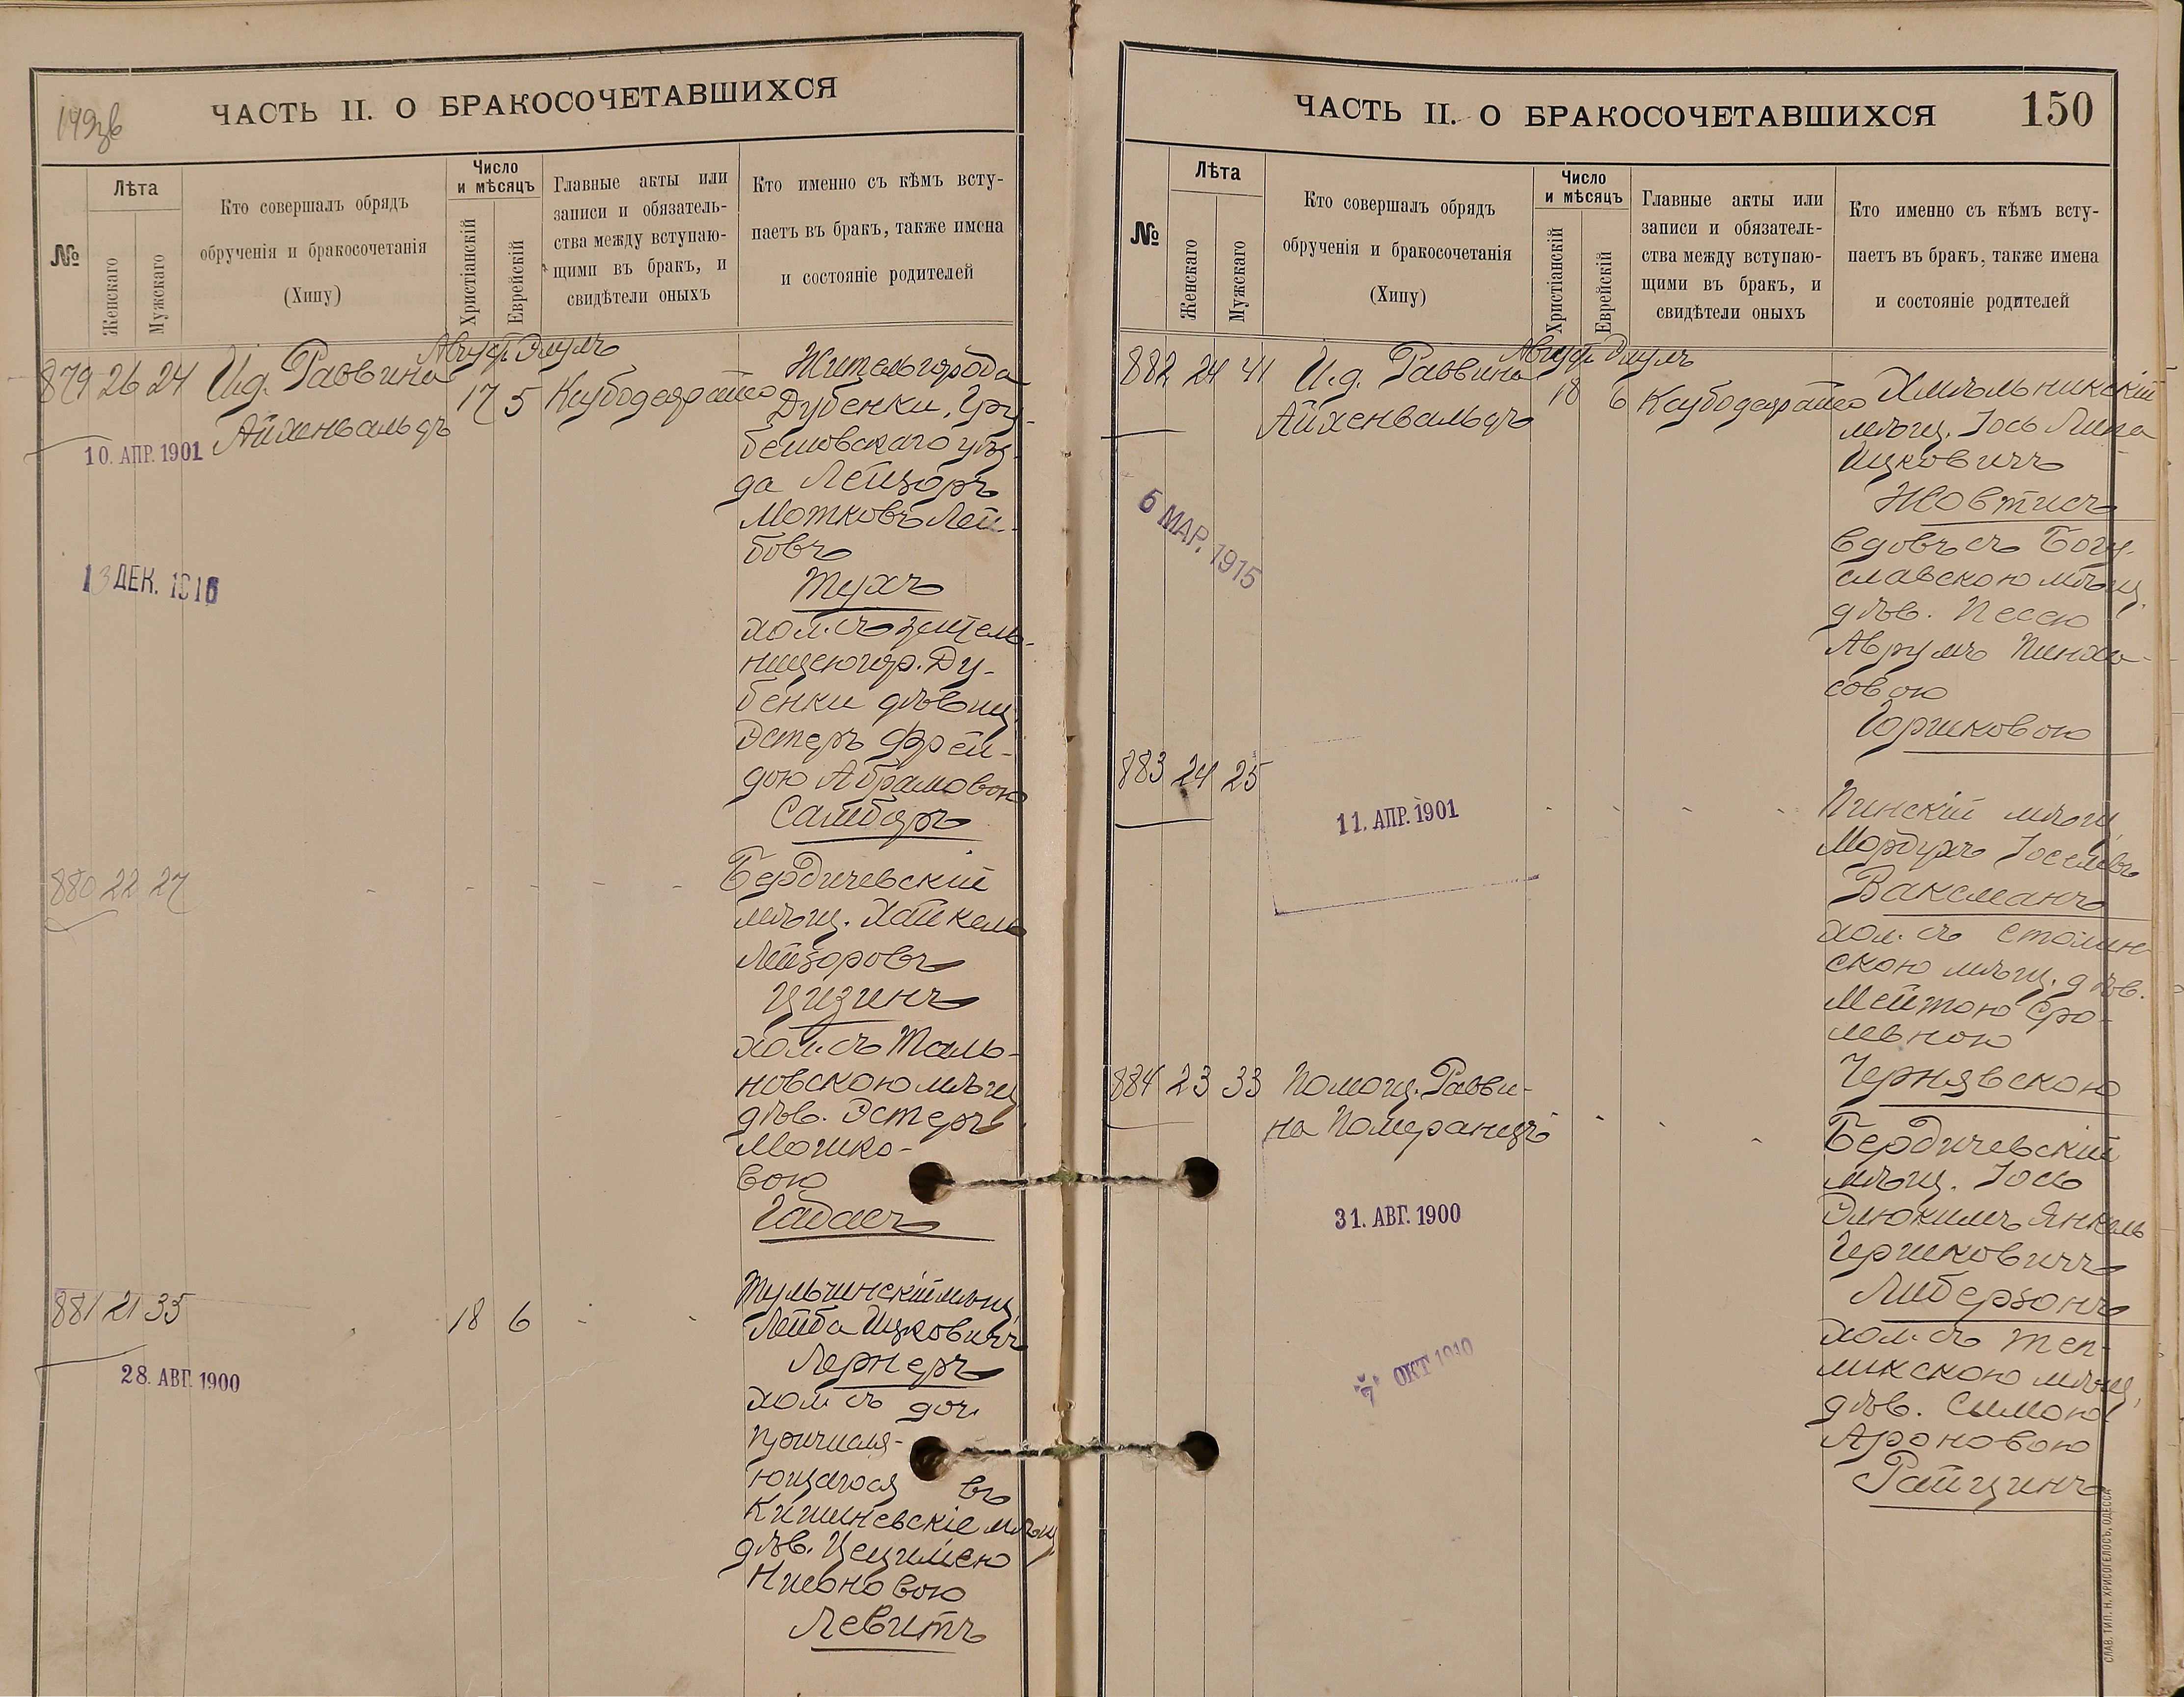 149зв
ЧАСТЬ II. О БРАКОСОЧЕТАВШИХСЯ
№
Лѣта
Женскаго
Мужскаго
Кто совершалъ обрядъ
обрученія и бракосочетанія
(Хипу)
Число
и мѣсяцъ
Христіанскій
Еврейскій
Главные акты или
записи и обязатель-
ства между вступаю-
щими въ бракъ, и
свидѣтели оныхъ
Кто именно съ кѣмъ всту-
паетъ въ бракъ, также имена
и состояніе родителей
Август. Элулъ
879 26 24 И.д. Раввина 17 5
Айхенвальдъ
10. АПР. 1901
13 ДЕК. 1916
Житель города
Дубенки, Гру-
бешовскаго уѣз-
да Лейзоръ
Мотковъ Лей-
бовъ
Тухъ
хол. съ житель-
ницею гор. Ду-
бенки дѣвиц.
Эстеръ Фрей-
дою Абрамовою
Самбиръ
880 22 27 - - - - -
Бердичевскій
мѣщ. Хайкель
Лейзоровъ
Цизинъ
хол. съ Таль-
новскою мѣщ.
дѣв. Эстеръ
Мошко-
вою
Габасъ
881 21 35 18 6 - -
28. АВГ. 1900
Тульчинскій мѣщ.
Лейба Ицковичъ
Лернеръ
хол. съ доч.
причисля-
ющагося въ
Кишиневскіе мѣщ.
дѣв.
Левитъ
ЧАСТЬ II. О БРАКОСОЧЕТАВШИХСЯ
150
№
Лѣта
Женскаго
Мужскаго
Кто совершалъ обрядъ
обрученія и бракосочетанія
(Хипу)
Число
и мѣсяцъ
Христіанскій
Еврейскій
Главные акты или
записи и обязатель-
ства между вступаю-
щими въ бракъ, и
свидѣтели оныхъ
Кто именно съ кѣмъ всту-
паетъ въ бракъ, также имена
и состояніе родителей
Август. Элулъ
882 24 41 И.д. Раввина 18 6
Айхенвальдъ
6 МАР. 1915
Хмѣльникскій
мѣщ. Іось Липа
Ицковичъ
Жовтисъ
вдовъ съ Богу-
славскою мѣщ.
дѣв. Песею
Аврумъ Пинха-
совою
Горшковою
883 24 25 - - - -
11. АПР. 1901
Пинскій мѣщ.
Мордухъ Іоселевъ
Ваксманъ
хол. съ Столин-
скою мѣщ. дѣв.
Мейтою Сро-
левною
Чернявскою
884 23 33 Помощ. Равви-
на Померанецъ - - -
31. АВГ. 1900
7 ОКТ 1910
Бердичевскій
мѣщ. Іось
Элюкимъ Янкель
Гершковичъ
Либерзонъ
хол. съ Теп-
ликскою мѣщ.
дѣв. Симою
Ароновою
Райцинъ
СЛАВ. ТИП. Н. ХРИСОГЕЛОСЪ, ОДЕССА